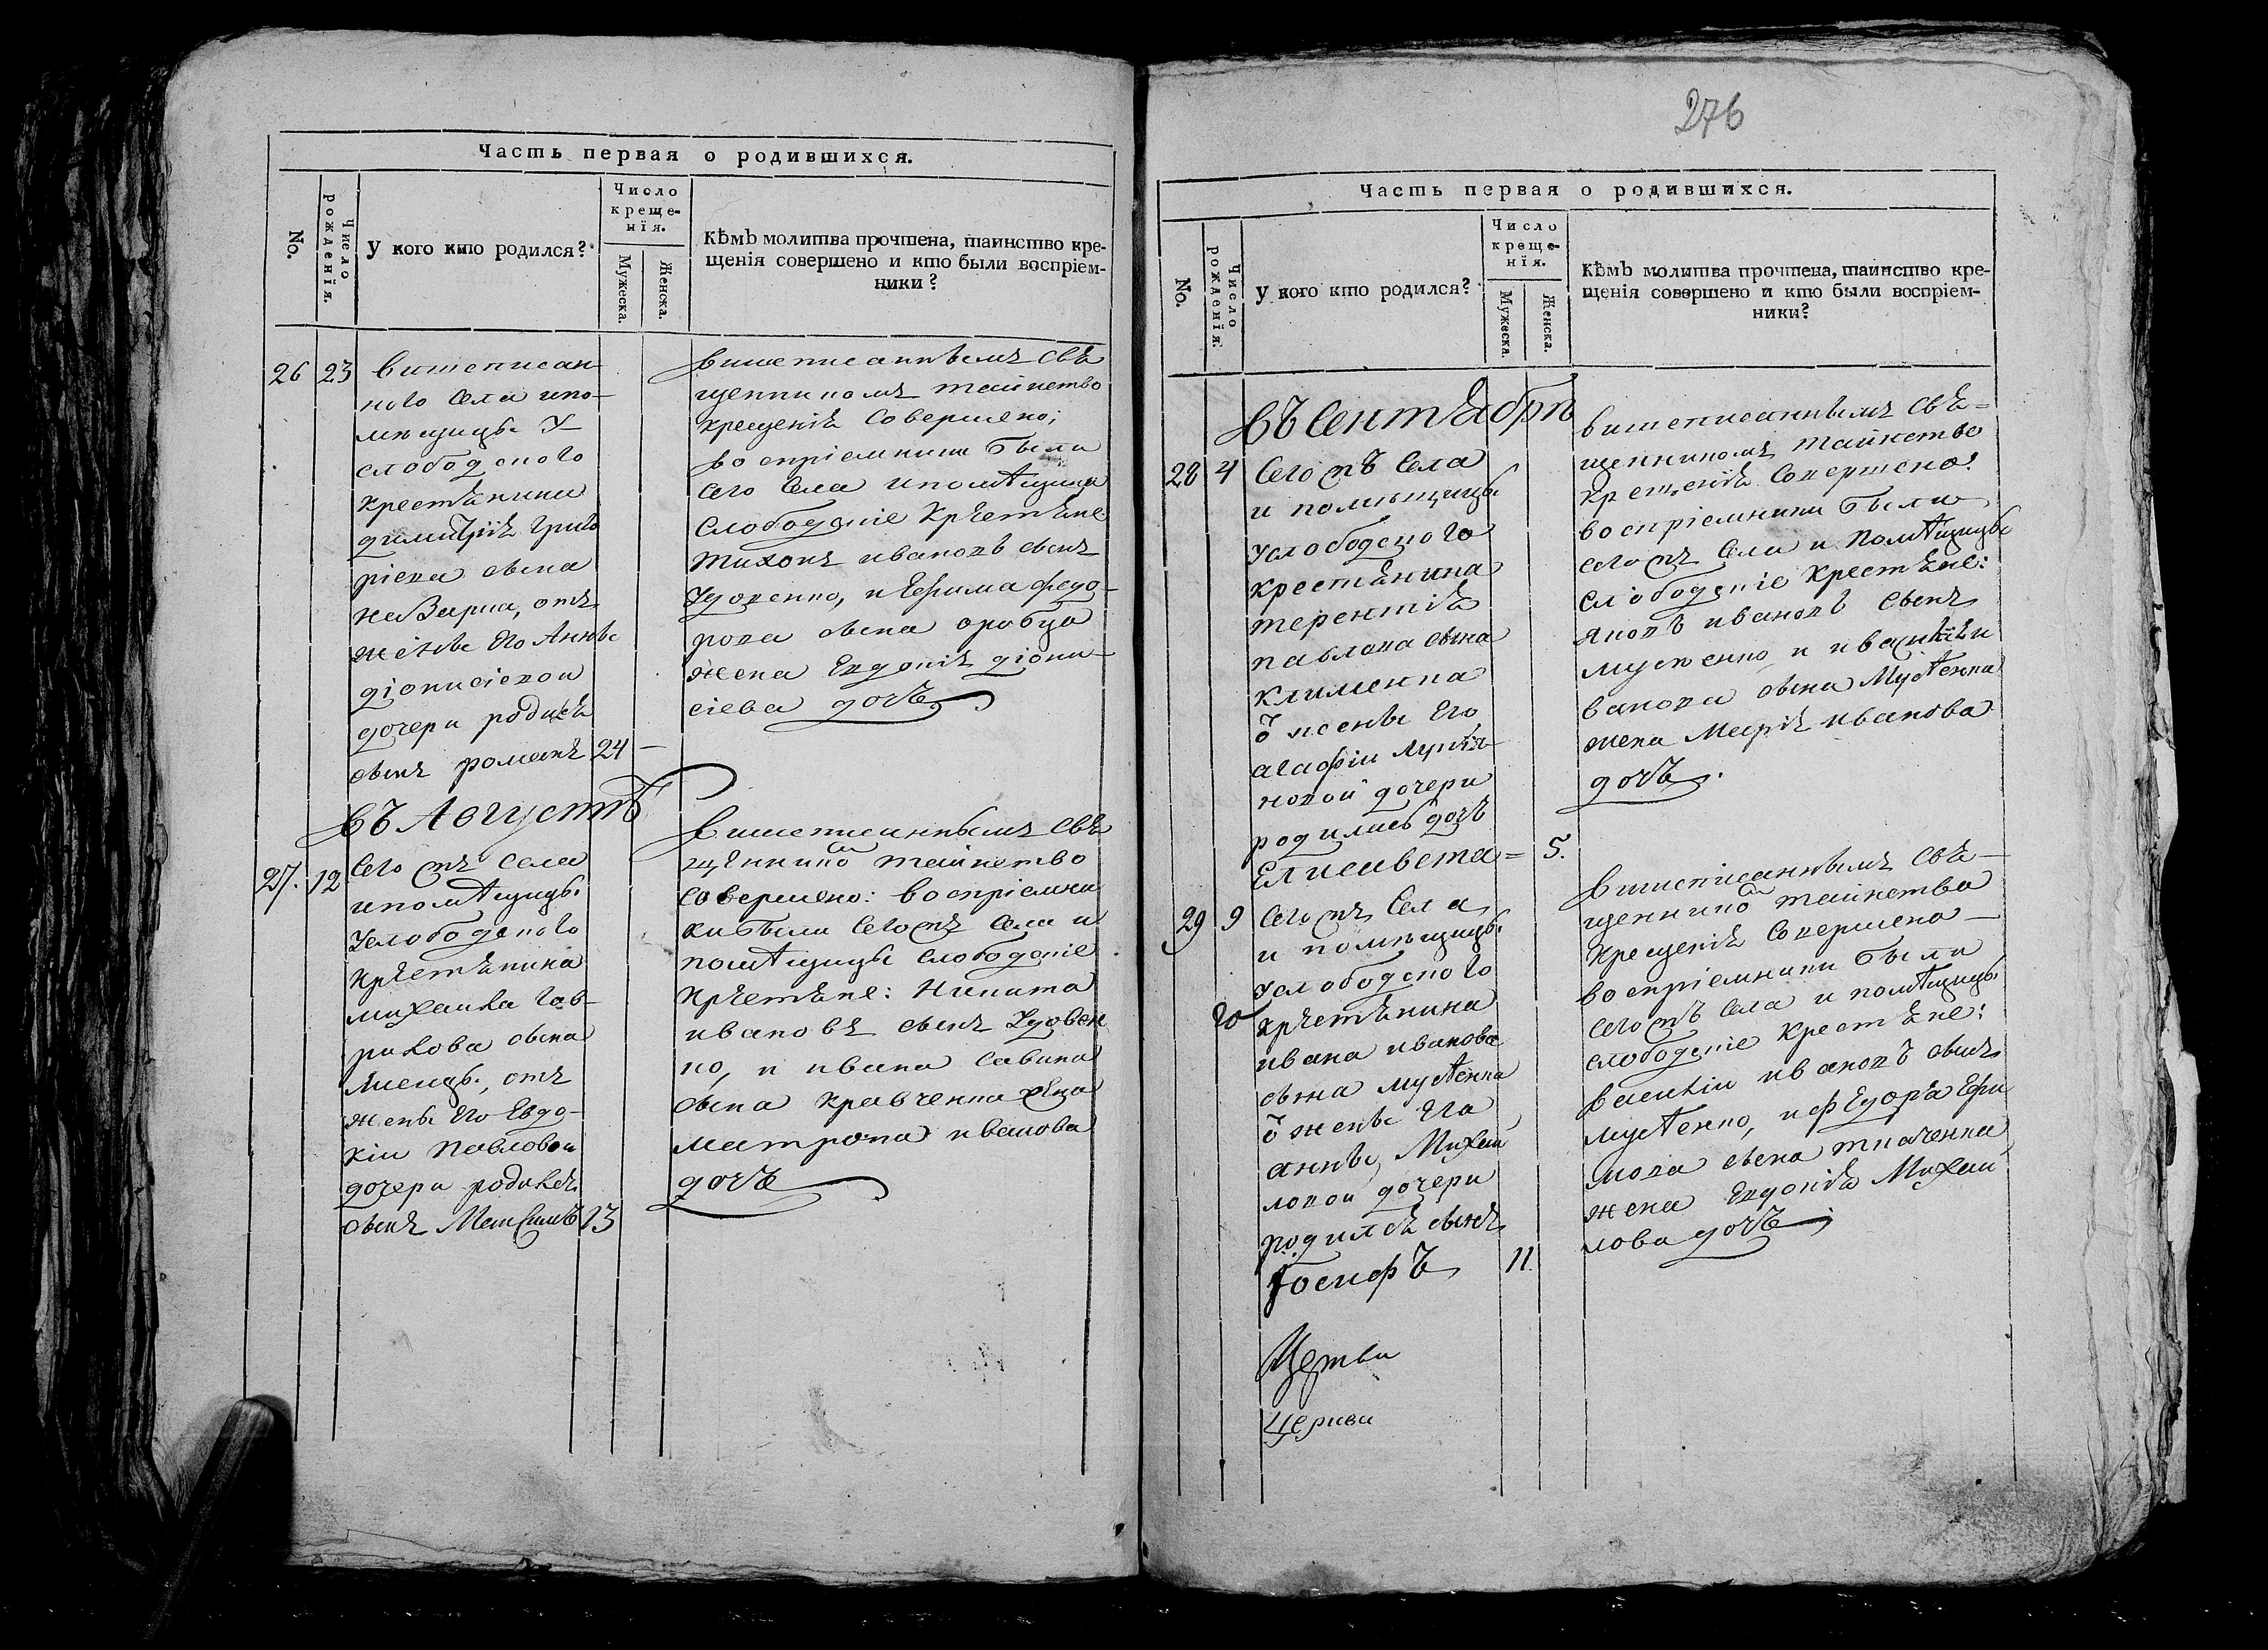 Часть первая о родившихся.
No.
Число рожденїя.
У кого кто родился?
Число
креще-
нїя.
Мужеска.
Женска.
Кѣмъ молитва прочтена, таинство кре-
щенія совершено и кто были воспріем-
ники?
26 23 вишеписан
ного Села ипо-
мѣщицы У
слободского
крестянина
димитрія григо
ріева сына
отъ
жены Его Анны
діонисіевои
дочери родися
сынъ романъ 24 —
вишеписаннымъ свя
щенникомъ таинство
крещенія Совершено;
воспріемники были
сего Села ипомѣщици
слободскіе крестяне
тихонъ ивановъ сынъ
Удовенко, и Ефима федо-
рова сына
жена Евдокія діони-
сіева дочь
въ Августѣ
27. 12 Сегожъ села
ипомѣщицы
Услободского
крестянина
михаила гав-
рилова сына
отъ
жены Его Евдо-
кіи Павловои
дочери родился
сынъ Максимъ 13
вишеписаннымъ свя
щеннико таинство
совершено: воспріемни
ки были Сегожъ Села и
помѣщицы слободскіе
крестяне: Никита
ивановъ сынъ Удовен
ко, и ивана савина
сына кравченка жена
матрона иванова
дочь
276
Часть первая о родившихся.
No.
Число рожденїя.
У кого кто родился?
Число
креще-
нїя.
Мужеска.
Женска.
Кѣмъ молитва прочтена, таинство кре-
щенія совершено и кто были воспріем-
ники?
въ Сентябрѣ
28 4 Сегожъ Села
и помѣщицы
услободского
крестянина
терентія
павлова сына
клименка
ѿ жены Его
агафіи лукія-
новой дочери
родилась дочь
Елисавета = 5.
вишеписаннымъ свя=
щенникомъ таинство
крещенія Совершено:
воспріемники были
сегожъ Села и помѣщицы
слободскіе крестяне:
яковъ ивановъ сынъ
и василія и
ванова сына Мусѣенка
жена Марія иванова
дочь.
29 9 Сегожъ Села
и помѣщицы
услободского
крестянина
ивана иванова
сына мусѣенка
ѿ жены Его
анны, Михаи
ловои дочери
родился сынъ
Іосифъ 11.
вишеписаннымъ свя—
щеннико таинства
крещенія Совершено—
воспріемники были
сегожъ Села и помѣщицы
слободскіе крестяне:
василіи ивановъ сынъ
мусѣенко, и фЕдора Ефи
мова сына ткаченка
жена Евдокія Михаи
лова дочь
Церкви